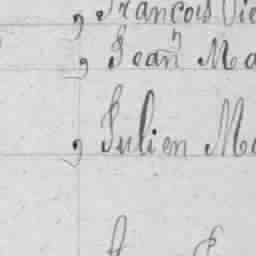 , François Vie
, Jean Ma
, Julien Ma